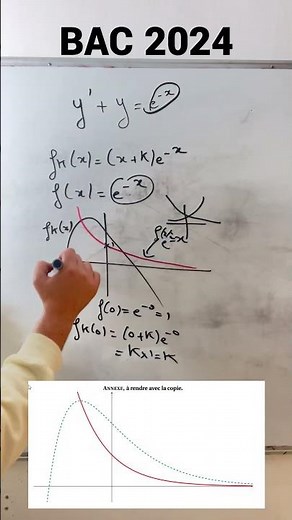 BAC 2024
y' + y = e^{-x}
fk(x) = (x+k)e^{-x}
f(x) = e^{-x}
fk(x)
f(0) = e^{-0} = 1
fk(0) = (0+k)e^{-0}
= k×1 = k
ANNEXE, à rendre avec la copie.